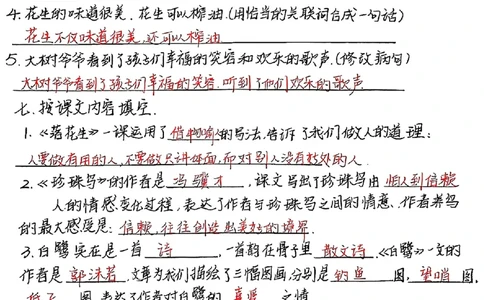 4.花生的味道很美。花生可以榨油。(用恰当的关联词合成一句话)
花生不仅味道很美,还可以榨油
5.大树爷爷看到了孩子们幸福的笑容和欢乐的歌声。(修改病句)
大树爷爷看到了孩子们幸福的笑容,听到了他们欢乐的歌声
七、按课文内容填空.
1.《落花生》一课运用了借物喻人的写法,告诉了我们做人的道理:
人要做有用的人,不要做只讲体面,而对别人没有好处的人.
2.《珍珠鸟》的作者是 冯骥才 ,课文写出了珍珠鸟由 怕人到信赖
人的情感变化过程,表达了作者与珍珠鸟之间的情意、作者养鸟
的最大感受是: 信赖,往往创造出美好的境界.
3.白鹭实在是一首 诗 ,一首韵在骨子里 散文诗.《白鹭》一文的
作者是 郭沫若 .文章为我们描绘了三幅图画分别是 钓鱼 图,望哨 图,
图,表达了作者对白鹭的 喜爱 之情